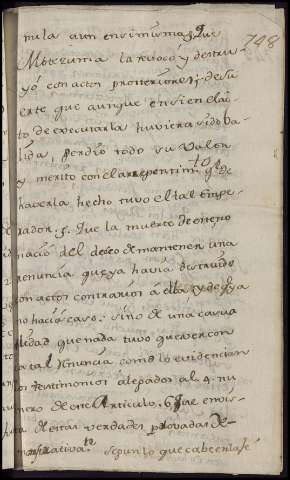 748
mula aun en si misma; que
Motezuma la revocó y destru-
yó con actos posteriores; de su-
erte que aunque en si en el ac-
to de executarla huviera sido va-
lida, perdió todo su valor
y merito con el arrepentim.to q.e de
haverla hecho tuvo el tal Empe-
rador. 5. Que la muerte de este no
nació del deseo de mantener una
renuncia que ya havia destruido
con actos contrarios á ella, y de q.e ya
no hacia caso; sino de una casua
lidad que nada tuvo que ver con
la tal renuncia como lo evidencian
los testimonios alegados al 4. nu
mero de este Articulo. 6. Que en vis-
ta de estas verdades provadas de-
mostrativam.te se punto que cabe en la fé